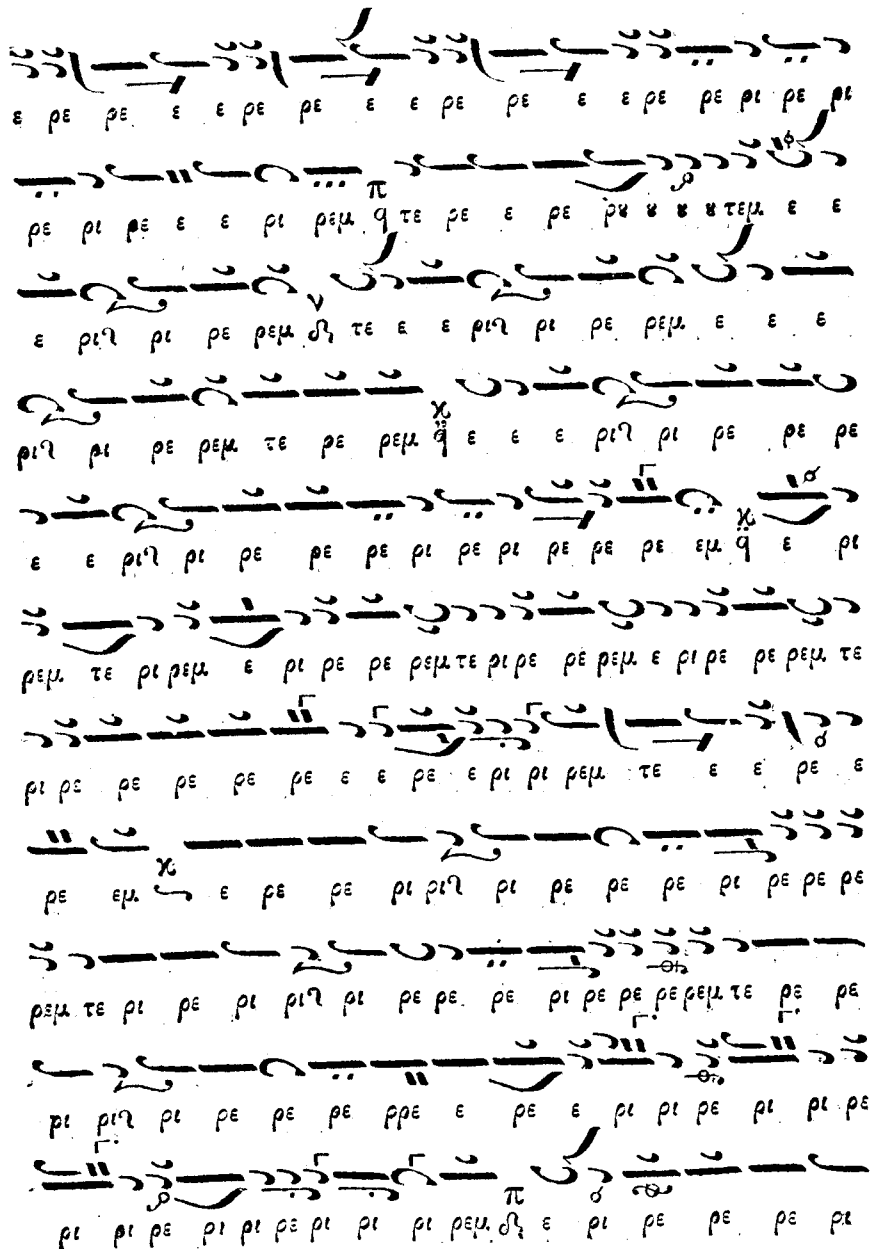 ε ρε ρε ε ε ρε ρε ε ε ρε ρε ε ε ρε ρε ρι ρε ρι
ρε ρι ρε ε ε ρι ρεμ π q τε ρε ε ρε ρȣ ȣ ȣ ȣ τεμ ε ε
ε ριϡ ρι ρε ρεμ ν τε ε ε ριϡ ρι ρε ρεμ ε ε ε
ριϡ ρι ρε ρεμ τε ρε ρεμ ϰ q ε ε ε ριϡ ρι ρε ρε ρε
ε ε ριϡ ρι ρε ρε ρε ρι ρε ρι ρε ρε ρε εμ ϰ q ε ρι
ρεμ τε ρι ρεμ ε ρι ρε ρε ρεμ τε ρι ρε ρε ρεμ ε ρι ρε ρε ρεμ τε
ρι ρε ρε ρε ρε ρε ε ε ρε ε ρι ρι ρεμ τε ε ε ρε ε
ρε εμ ϰ ε ρε ρε ρι ριϡ ρι ρε ρε ρε ρι ρε ρε ρε
ρεμ τε ρι ρε ρι ριϡ ρι ρε ρε ρε ρι ρε ρε ρε ρεμ τε ρε ρε
ρι ριϡ ρι ρε ρε ρε ρρε ε ρε ε ρι ρι ρε ρι ρι ρε
ρι ρι ρε ρι ρι ρε ρι ρι ρι ρεμ π ε ρι ρε ρε ρε ρι